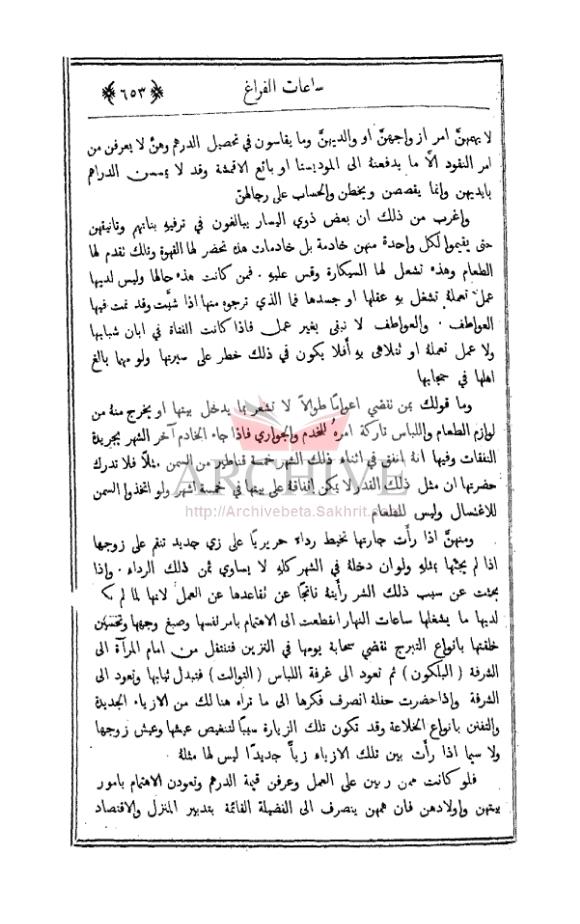 ساعات الفراغ ﴿٦٥٣﴾
لا يهمهنَّ امر ازواجهنَّ او والديهنَّ وما يقاسون في تحصيل الدرهم وهنَّ لا يعرفن من
امر النقود الاَّ ما يدفعنهُ الى الموديستا او بائع الاقمشة وقد لا يمسسن الدراهم
بايديهن وإنما يقصصن ويخطن والحساب على رجالهنّ
واغرب من ذلك ان بعض ذوي اليسار يبالغون في ترفيه بناتهم وتانيقهن
حتى يقيموا لكل واحدة منهن خادمة بل خادمات هذه تحضر لها القهوة وتلك تقدم لها
الطعام وهذه تشعل لها السيكارة وقس عليهِ . فمن كانت هذه حالها وليس لديها
عمل تعملهُ تشغل بهِ عقلها او جسدها فما الذي ترجوهُ منها اذا شبَّت وقد نمت فيها
العواطف . والعواطف لا تبقى بغير عمل فاذا كانت الفتاة في ابان شبابها
ولا عمل تعملهُ او تتلاهى بهِ أفلا يكون في ذلك خطر على سيرتها ولو مهما بالغ
اهلها في حجابها
وما قولك بمن تقضي اعواماً طوالاً لا تشعر بما يدخل بيتها او يخرج منهُ من
لوازم الطعام واللباس تاركة امرهُ للخدم والجواري فاذا جاء الخادم آخر الشهر بجريدة
النفقات وفيها انهُ انفق في اثناء ذلك الشهر خمسة قناطير من السمن مثلاً فلا تدرك
حضرتها ان مثل ذلك القدر لا يمكن انفاقهُ على بيتها في خمسة اشهر ولو اتخذوا السمن
للاغتسال وليس للطعام
ARCHIVE
http://Archivebeta.Sakhrit.com
ومنهنَّ اذا رأت جارتها تخيط رداءً حريريًّا على زي جديد تنقم على زوجها
اذا لم يجئها بمثلهِ ولو ان دخلهُ في الشهر كلهِ لا يساوي ثمن ذلك الرداء . وإذا
بحثت عن سبب ذلك الشر رأيتهُ ناتجاً عن تقاعدها عن العمل لانها لما لم يكن
لديها ما يشغلها ساعات النهار انقطعت الى الاهتمام بامر لبسها وصبغ وجهها وتحسين
خلقتها بانواع التبرج تقضي سحابة يومها في التزين فتنتقل من امام المرآة الى
الشرفة ( البلكون ) ثم تعود الى غرفة اللباس ( التوالت ) فتبدل ثيابها وتعود الى
الشرفة وإذا حضرت حفلة انصرف فكرها الى ما تراه هنالك من الازياء الجديدة
والتفنن بانواع الخلاعة وقد تكون تلك الزيارة سبباً لتنغيص عيشها وعيش زوجها
ولا سيما اذا رأت بين تلك الازياء زياً جديداً ليس لها مثلهُ .
فلو كانت ممن ربين على العمل وعرفن قيمة الدرهم وتعودن الاهتمام بامور
بيتهن وإولادهن فان همهن ينصرف الى الفضيلة القائمة بتدبير المنزل والاقتصاد